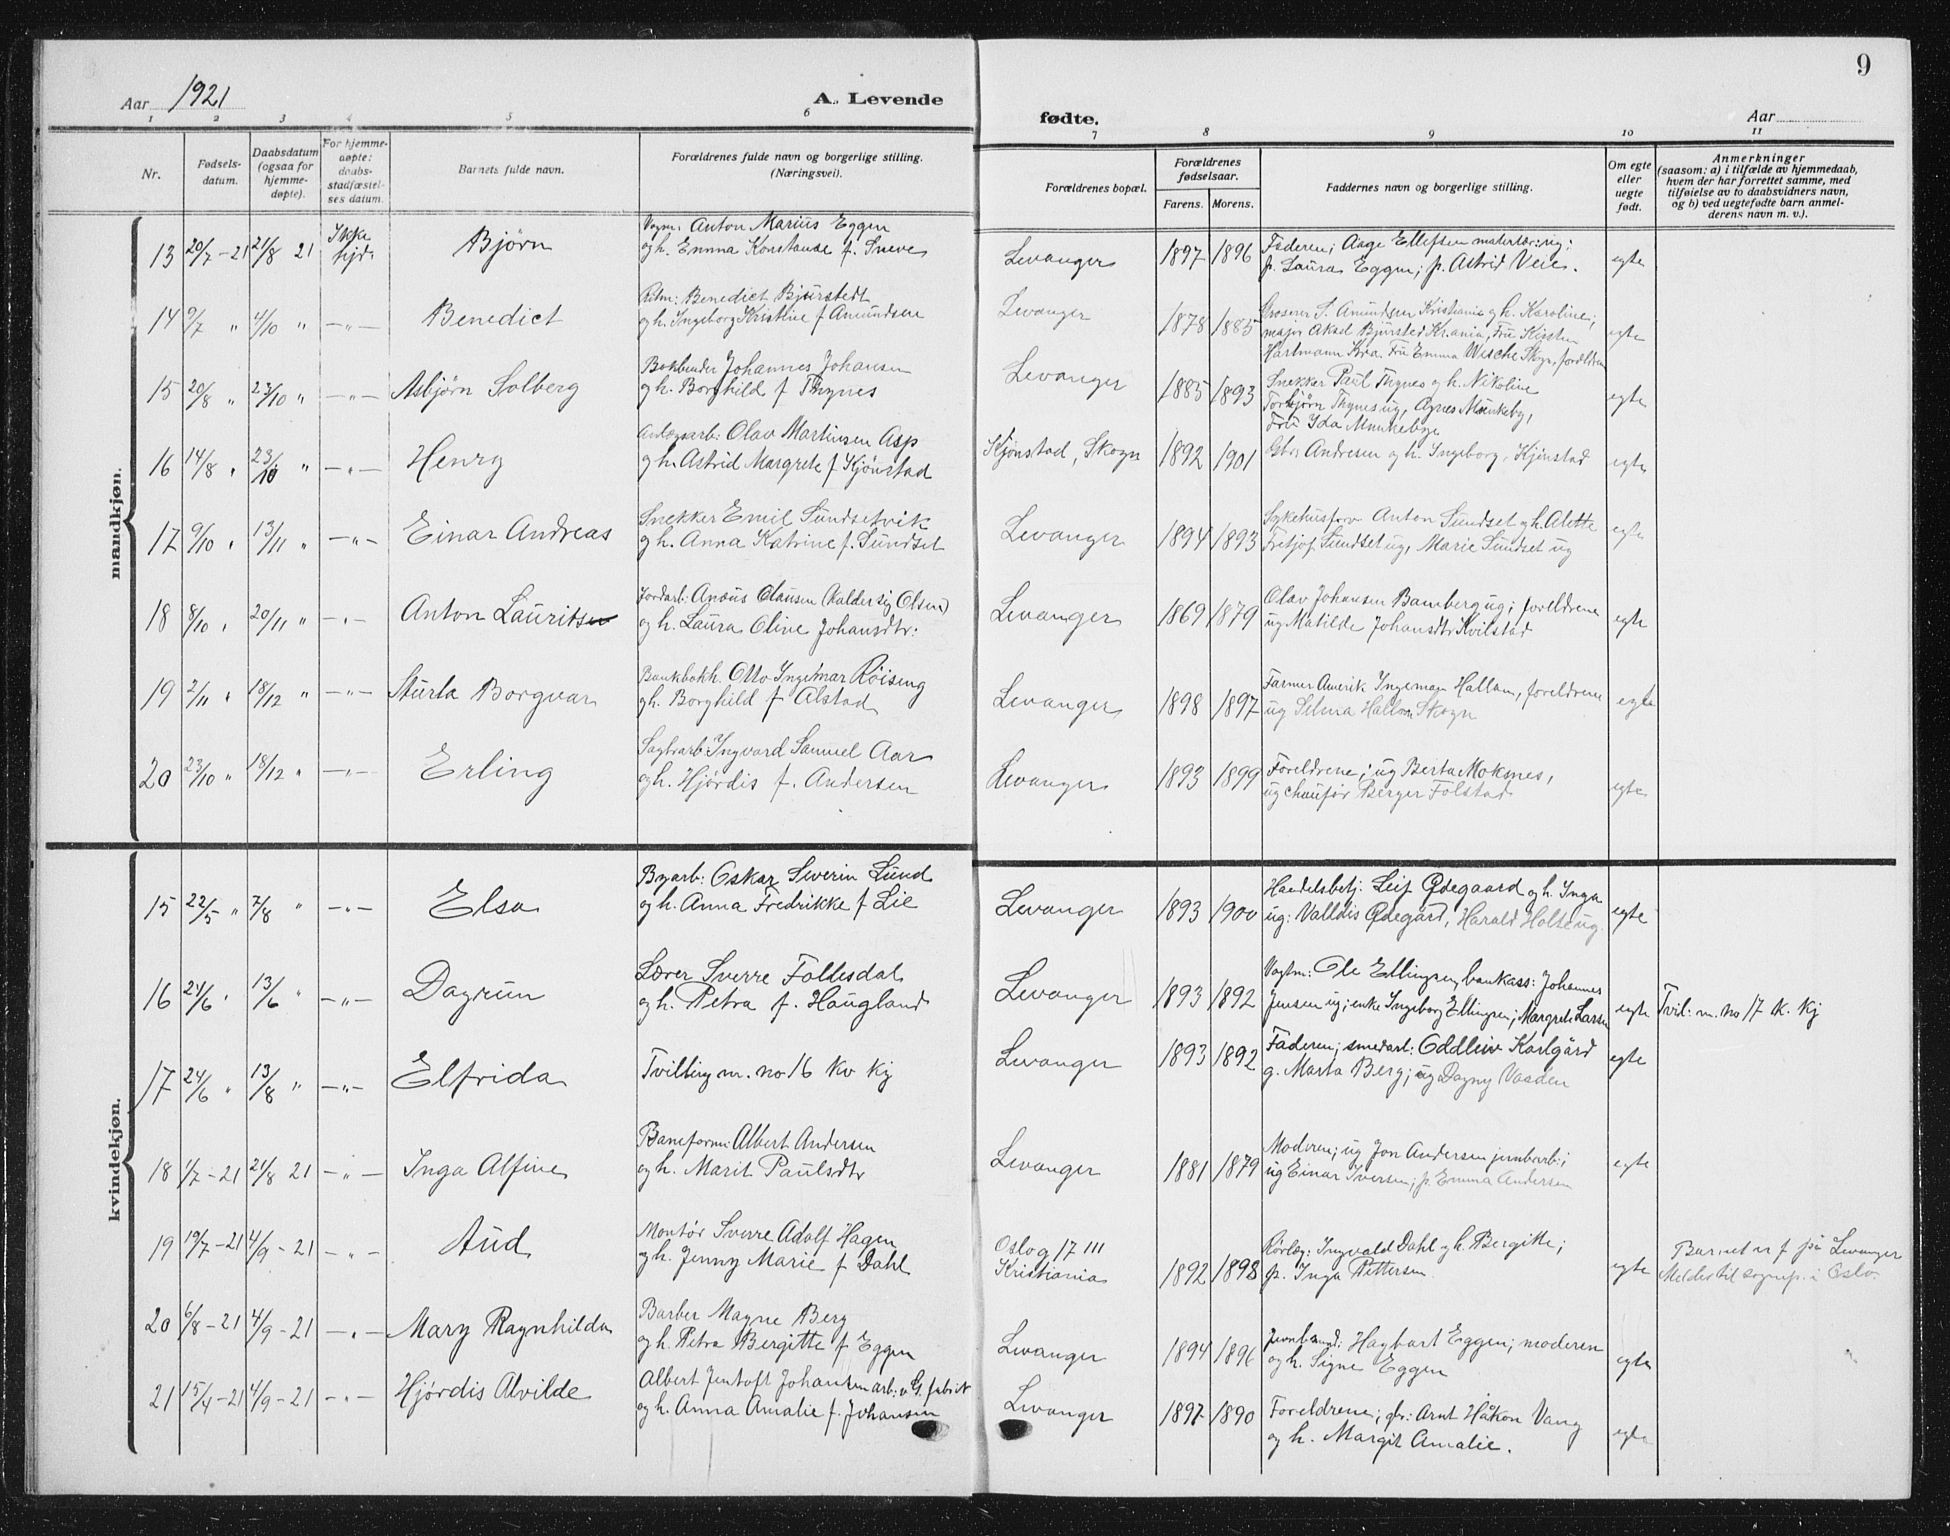 9
Aar 1921
A. Levende
fødte.
Aar
1 2 3 4 5 6 7 8 9 10 11
Nr.
Fødsels-
datum.
Daabsdatum
(ogsaa for
hjemme-
døpte).
For hjemme-
døpte:
daabs-
stadfæstel-
ses datum.
Barnets fulde navn.
Forældrenes fulde navn og borgerlige stilling.
(Næringsvei).
Forældrenes bopæl.
Forældrenes
fødselsaar.
Farens. Morens.
Faddernes navn og borgerlige stilling.
Om egte
eller
uegte
født.
Anmerkninger
(saasom: a) i tilfælde av hjemmedaab,
hvem der har forrettet samme, med
tilføielse av to daabsvidners navn,
og b) ved uegtefødte barn anmel-
derens navn m. v.).
mandkjøn.
13 20/7 - 21 21/8 21 Ikke hjd. Bjørn
Vogm: Anton Marius Eggen
og h. Emma Konstanse f. Sneve
Levanger 1897 1896
Faderen; Aage Ellefsen
f. Laura Eggen; p. Astrid Veie.
egte
14 9/7 " 4/10 " — " — Benedict
Ritm: Benedict Bjurstedt
og h. Ingeborg Kristine f Amundsen
Levanger 1878 1885
Grosserer S. Amundsen Kristiania og h. Karoline;
major Aksel Bjursted Krania, Fru Kirsten
Hartmann Kra. Fru Emma Wesche Skogn, foreldrene
egte
15 20/8 " 23/10 " — " — Asbjørn Solberg
Bokbinder Johannes Johansen
og h. Borghild f Thynes
Levanger 1885 1893
Snekker Paul Thynes og h. Nikoline
Torbjørn Thynes ug, Agnes Munkeby,
Fru Ida Munkebye
egte
16 14/8 " 23/10 " — " — Henry
Anlægsarb: Olav Martinsen Asp
og h. Astrid Margrete f Kjønstad
Kjønstad, Skogn 1892 1901
Gbr: Andresen og h. Ingeborg, Kjønstad
egte
17 9/10 " 13/11 " — " — Einar Andreas
Snekker Emil Sundsetvik
og h. Anna Katrine f. Sundset
Levanger 1894 1893
Sykehusforv Anton Sundset og h. Alette
Fretjof Sundset ug, Marie Sundset ug
egte
18 8/10 " 20/11 " — " — Anton Lauritsen
Jordarb: Anæus Olausen (kalder sig Olsen)
og h. Laura Oline Johansdtr:
Levanger 1869 1879
Olav Johansen Bamberg ug; foreldrene
ug Matilde Johansdtr Kvilstad
egte
19 2/11 " 18/12 " — " — Sturla Borgvar
Bankbokh. Otto Ingemar Røising
og h. Borghild f Alstad
Levanger 1898 1897
Farmer Amerik Ingeman Hallam, foreldrene
ug Selma Hallan Skogn
egte
20 23/10 " 18/12 " — " — Erling
Sagbrarb Ingvard Samuel Aar
og h. Hjørdis f. Andersen
Levanger 1893 1899
Foreldrene; ug Berta Moksnes,
ug chaufør Berger Folstad
egte
kvindekjøn.
15 22/5 " 7/8 " — " — Elsa
Byarb: Oskar Severin Lund
og h. Anna Fredrikke f Lie
Levanger 1893 1900
Handelsbetj: Leif Ødegaard og h. Inga
ug: Valldis Ødegård, Harald Holte ug.
egte
16 24/6 " 13/6 " — " — Dagrun
Lærer Sverre Follesdal
og h. Petra f. Haugland
Levanger 1893 1892
Vagtm: Ole Ellingsen, bankass: Johannes
Jensen ug; enke Ingeborg Ellingsen; Margrete Larsen
egte Tvil: m. no 17 K. Kj
17 24/6 " 13/8 " — " — Elfrida
Tvilling m. no 16 Kv Kj
Levanger 1893 1892
Faderen; smedarb: Oddleiv Karlgård
g. Marta Berg; ug Dagny Vasden
egte
18 1/7 - 21 21/8 21 — " — Inga Alfine
Baneform: Albert Andersen
og h. Marit Paulsdtr
Levanger 1881 1879
Moderen; ug Jon Andersen jernbarb;
ug Einar Iversen; p. Emma Andersen
egte
19 19/7 - 21 4/9 - 21 — " — Aud
Montør Sverre Adolf Hagen
og h. Jenny Marie f Dahl
Oslog 17 III
Kristiania 1892 1898
Rørlæg: Ingvald Dahl og h. Bergitte;
p. Inga Pettersen
egte
Barnet er f på Levanger
Meldes til sognep. i Oslo
20 6/8 - 21 4/9 - 21 — " — Mary Ragnhilda
Barber Magne Berg
og h. Petra Bergitte f Eggen
Levanger 1894 1896
Hagbart Eggen; moderen
og h. Signe Eggen
egte
21 15/4 - 21 4/9 - 21 — " — Hjørdis Alvilde
Albert Jentoft Johansen arb: v G. fabrik
og h. Anna Amalie f. Johansen
Levanger 1897 1890
Foreldrene; gbr: Arnt Håkon Vang
og h. Margit Amalie.
egte